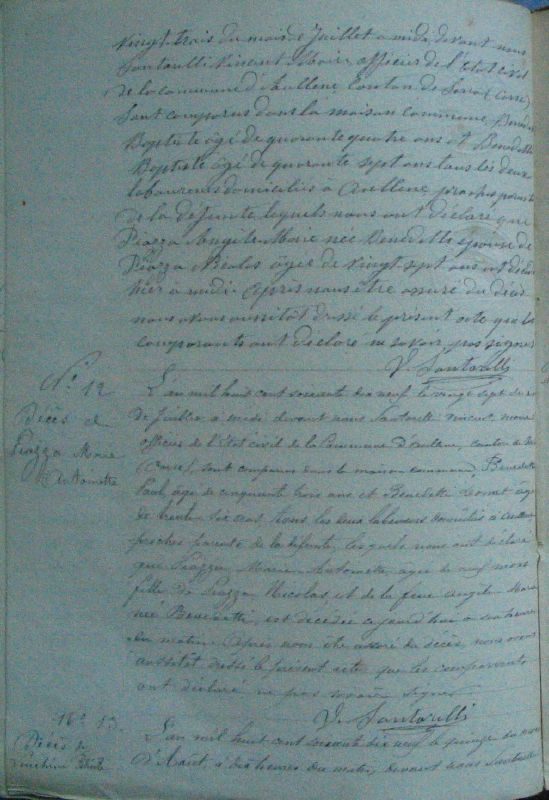 Vingt trois du mois de Juillet a midi, devant nous
Santarelli Vincent Maire, officier de l'Etat civil
de la commune d'Aullene Canton de Serra (Corse)
sont comparus dans la maison commune, Benedetti
Baptiste âgé de quarante quatre ans et Benedetti
Baptiste âgé de quarante sept ans tous les deux
laboureurs domiciliés à Aullene proches parents
de la defunte, lesquels nous ont déclaré que
Piazza Angile Marie née Benedetti épouse de
Piazza âgée de vingt sept ans est décédée
hier à midi. Apres nous être assuré du décés
nous avons aussitôt dressé le présent acte que les
comparants ont declare ne savoir pas signer
V. Santarelli
N.º 12
Décès de
Piazza Marie
Antoinette
L'an mil huit cent soixante dix neuf le vingt sept du mois
de Juillet à midi devant nous Santarelli Vincent, maire
officier de l'Etat civil de la Commune d'Aullene, canton de Serra
(Corse), sont comparus dans la maison commune, Benedetti
Paul, âgé de cinquante trois ans et Benedetti âgé
de trente six ans, tous les deux laboureurs domiciliés à Aullene
proches parents de la défunte, lesquels nous ont déclaré
que Piazza Marie Antoinette, agée de neuf mois
fille de Piazza Nicolas, et de la feue Angile Marie
née Benedetti, est décédée aujourd'hui à heures
du matin. Après nous être assuré du décès, nous avons
aussitôt dressé le présent acte que les comparants
ont déclaré ne pas savoir signer
V. Santarelli
Nº 13.
Décès de
L'an mil huit cent soixante dix neuf le quinze du mois
d'Août, à dix heures du matin, devant nous Santarelli